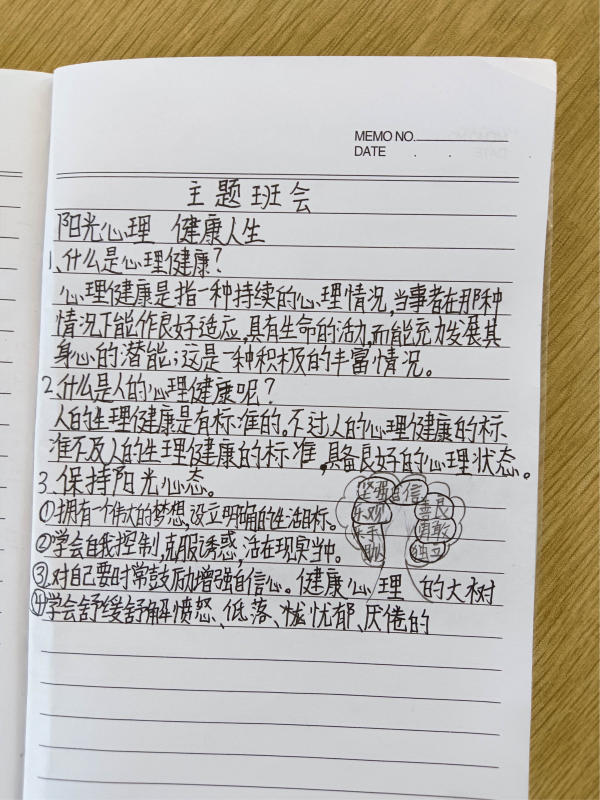 MEMO NO.
DATE . .
主题班会
阳光心理 健康人生
1、什么是心理健康?
心理健康是指一种持续的心理情况,当事者在那种
情况下能作良好适应,具有生命的活力,而能充力发展其
身心的潜能;这是一种积极的丰富情况。
2、什么是人的心理健康呢?
人的生理健康是有标准的,不过人的心理健康的标、
准不及人的生理健康的标准,具备良好的心理状态。
3、保持阳光心态。
坚强 自信
乐观 善良
乐于助 勇敢
独立
①拥有一个伟大的梦想,设立明确的生活目标。
②学会自我控制,克服诱惑,活在现实当中。
③对自己要时常鼓励增强自信心。健康心理 的大树
④学会舒缓舒解愤怒、低落、忧郁、厌倦的